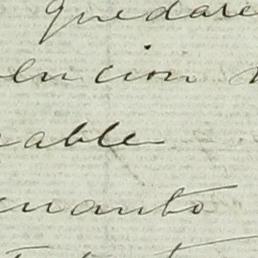 quedare
lucion
able
cuanto